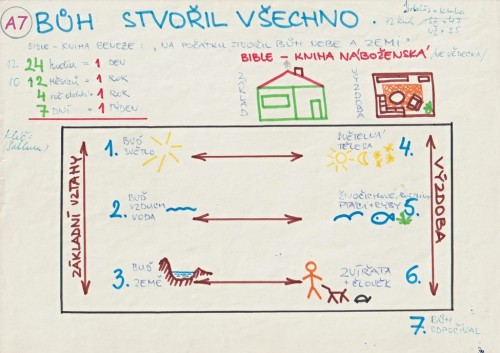 A7 BŮH STVOŘIL VŠECHNO.
BIBLE - KNIHA GENEZE: „NA POČÁTKU STVOŘIL BŮH NEBE A ZEMI"
BIBLE - KNIHA NÁBOŽENSKÁ /NE VĚDECKÁ/
12 24 hodin = 1 DEN
10 12 MĚSÍCŮ = 1 ROK
4 roč. období = 1 ROK
7 DNÍ = 1 TÝDEN
ZÁKLAD
VÝZDOBA
ZÁKLADNÍ VZTAHY
1. BUĎ SVĚTLO
SVĚTELNÁ TĚLESA 4.
2. BUĎ VZDUCH VODA
ŽIVOČICHOVÉ,
PTÁCI + RYBY 5.
3. BUĎ ZEMĚ
ZVÍŘATA + ČLOVĚK 6.
VÝZDOBA
7. BŮH ODPOČÍVAL